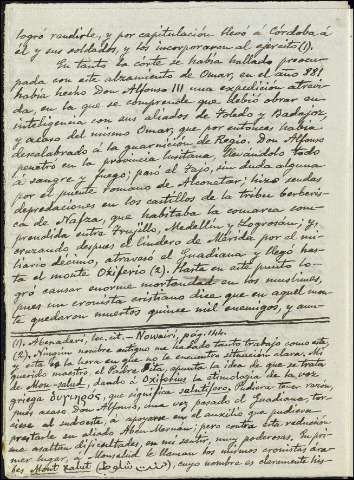 logró rendirle, y por capitulación llevó á Córdoba á
él y sus soldados, y los incorporaron al ejército (1).
En tanto la corte se había hallado preocu-
pada con este alzamiento de Omar, en el año 881
había hecho Don Alfonso III una expedición atrevi-
da, en la que se comprende que debió obrar en
inteligencia con sus aliados de Toledo y Badajoz,
y acaso del mismo Omar, que por entonces había
descalabrado á la guarnición de Regio. Don Alfonso
penetró en la provincia lusitana, llevándolo todo
á sangre y fuego; pasó el Tajo, sin duda alguna
por el puente romano de Alconetar; hizo sendas
depredaciones en los castillos de la tribu berberis-
ca de Nafza, que habitaba la comarca com-
prendida entre Trujillo, Medellín y Logrosán; y,
cruzando despues el lindero de Mérida por el mi-
liario décimo, atravesó el Guadiana y llegó has-
ta el monte Oxiferio (2). Hasta en este punto lo-
gró causar enorme mortandad en los muslimes,
pues un cronista cristiano dice que en aquel mon-
te quedaron muertos quince mil enemigos, y aun-
(1). Abenadari, loc. cit. — Nowairi, pág. 144.
(2). Ningún nombre antiguo me ha dado tanto trabajo como este,
y esta es la hora en que no le encuentro situación clara. Mi
querido maestro el Padre Fita, apunta la idea de que se trata
de Mon-salud, dando á Oxifobus la etimología de la voz
griega que significa salutífero. Pudiera tener razón,
pues acaso Don Alfonso, una vez pasado el Guadiana, tor-
ciese al sudoeste, á apoyarse en el auxilio que pudiera
prestarle su aliado Aben Meruán; pero contra esta reducción
me asaltan dificultades, en mi sentir, muy poderosas. En pri-
mer lugar, á Monsalud le llaman los mismos cronistas ára-
bes Mont xalut (منت شلوط), cuyo nombre es claramente his-